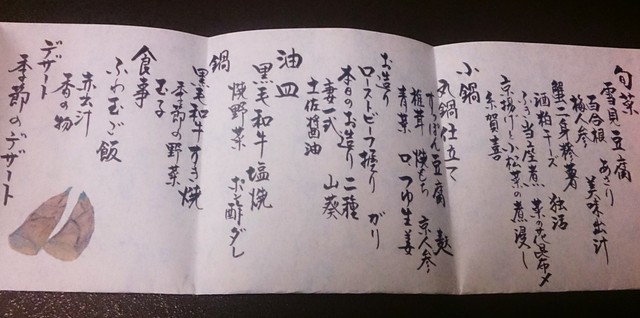 旬菜
雪見豆腐
百合根 あさり
梅人参 美味出汁
蟹二身糝薯
酒粕チーズ 独活
ふき当座煮 菜の花昆布〆
京揚げと小松菜の煮浸し
糸賀喜
小鍋
丸鍋仕立て
すっぽん豆腐 麩
椎茸 焼もち 京人参
青菜 口 つゆ生姜
お造り
ローストビーフ握り ガリ
本日のお造り二種
妻一式 山葵
土佐醤油
油皿
黒毛和牛 塩焼
焼野菜 ポン酢ダレ
鍋
黒毛和牛すき焼
季節の野菜
玉子
食事
ふわ玉ご飯
赤出汁
香の物
デザート
季節のデザート